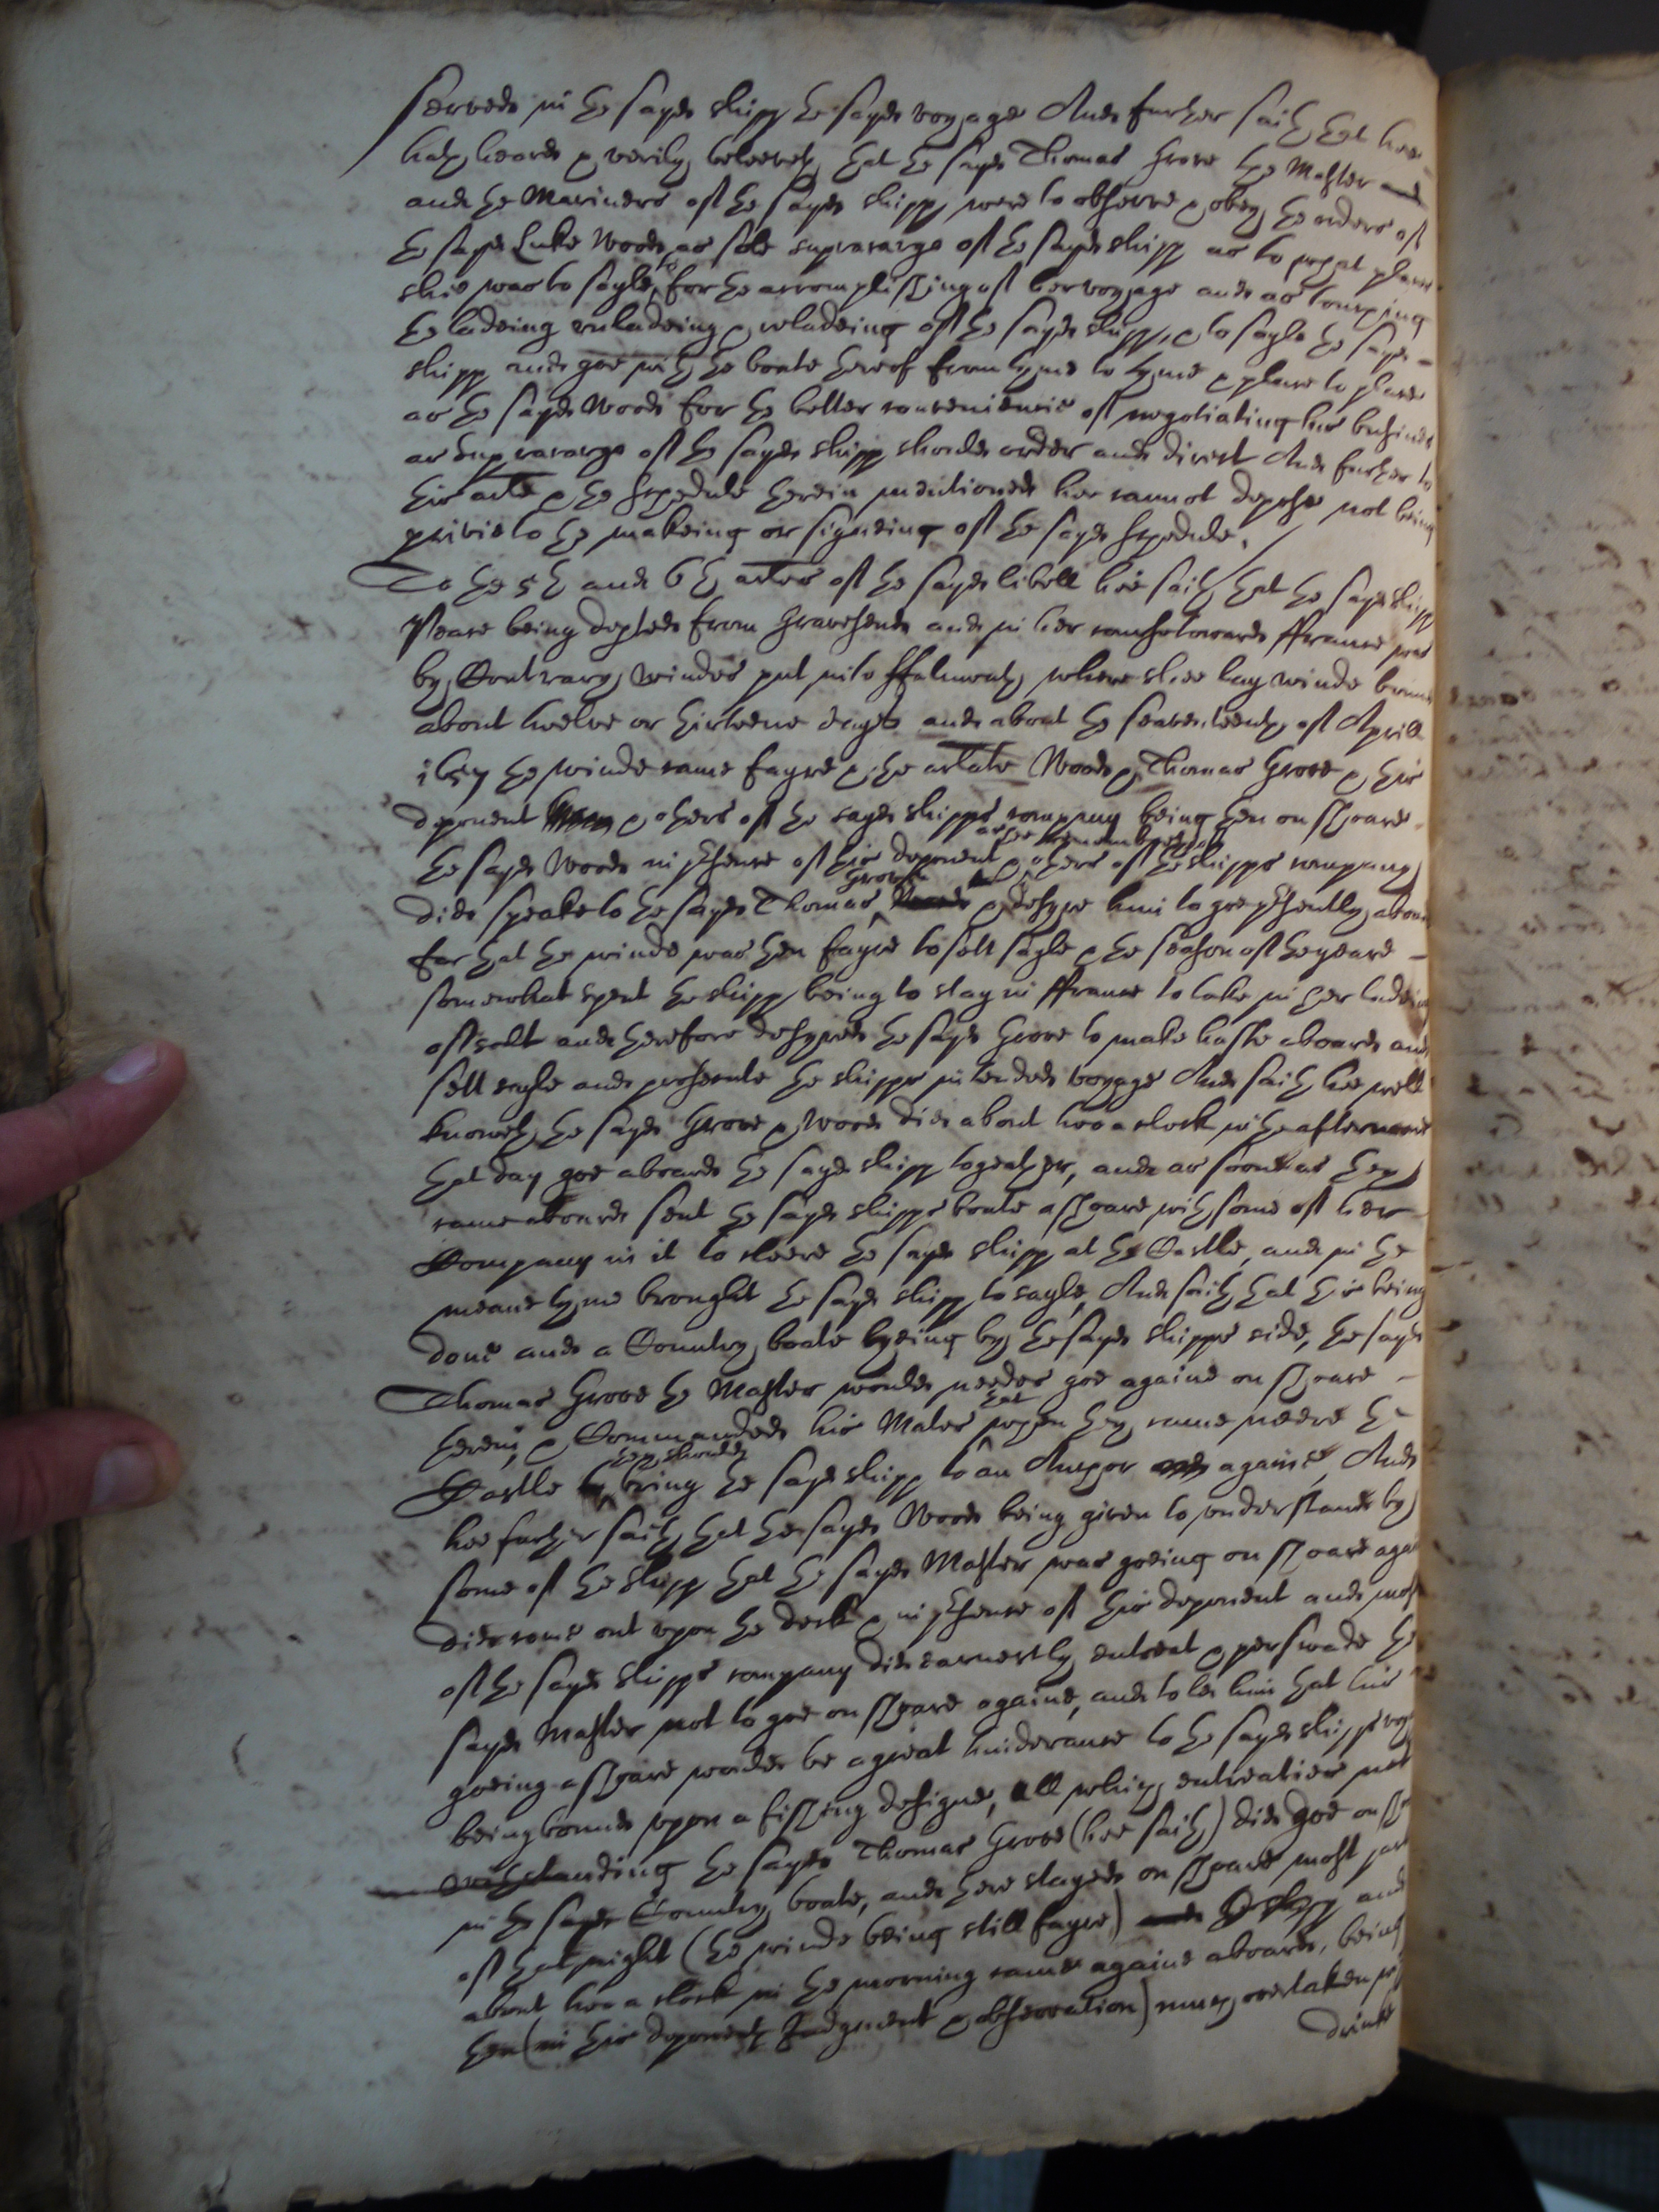 served in the sayd shipp the sayd voyage And further saith that hee
hath heard & verily beleeveth that the sayd Thomas Grove the Master and
and the Mariners of the sayd shipp were to observe & obey the orders of
the sayd Luke Wood as sole supracargo of the sayd shipp as to what place
shee was to sayle to for the accomplishing of her voyage and as touching
the ladeing unladeing & reladeing of the sayd shipp, & to sayle the sayd
shipp and goe with the boate thereof from tyme to tyme & place to place
as the sayd Wood for the better conveniencie of negotiating his busines
as Supracargo of the sayd shipp should order and direct And further to
this arle & the schedule therein mentioned hee cannot depose not being
privie to the makeing or signeing of the sayd schedule.
To the 5th and 6th arles of the sayd libell hee saith that the sayd shipp
Peare being dephed from Gravesend and in her course towards ffrance was
by Contrary windes put into ffalmouth where shee lay winde bound
about twelve or thirteene dayes and about the seaventeenth of Aprill
1657 the winde came fayre & the arlate Wood & Thomas Grove & this
deponent & others of the sayd shipps company being then on shoare
the sayd Wood in psence of this deponent & others of the shipps company
as hee remembreth
did speake to the sayd Thomas Grove & desyre him to goe psently aboard
for that the winde was then fayre to sett sayle & the season of the yeare
somewhat spent the shipp being to stay in ffrance to take in her ladeing
of salt and therefore desyred the sayd Grove to make haste aboard and
sett sayle and prosecute the shipps intended voyage And saith hee well
knoweth the sayd Grove & Wood did about two a clock in the afternoone
that day goe aboard the sayd shipp togeather, and as soone as they
came aboard sent the sayd shipps boate ashoare with some of her
Company in it to cleere the sayd shipp at the Castle, and in the
meane tyme brought the sayd shipp to sayle, And saith that this being
done and a Country boate lyeing by the sayd shipps side, the sayd
Thomas Grove the Master would needes goe againe on shoare
therein, & Commanded his Mates that when they came neere the
Castle they should bring the sayd shipp to an Anchor againe, And
hee further saith that the sayd Wood being given to understand by
some of the shipp that the sayd Master was goeing on shoare againe
did come out upon the deck & in psence of this deponent and most
of the sayd shipps company did earnestly entreat & perswade the
sayd Master not to goe on shoare againe, and told him that his
goeing ashoare would be a great hinderance to the sayd shipps voyage
being bound upon a fishing designe, all which entreaties not
withstanding the sayd Thomas Grove (hee saith) did goe on shoare
in the sayd Country boate, and there stayed on shoare most part
of that night (the winde being still fayre) and
about two a clock in the morning came againe aboard, being
then (in this deponents Judgment & observation) much overtaken with
drinke